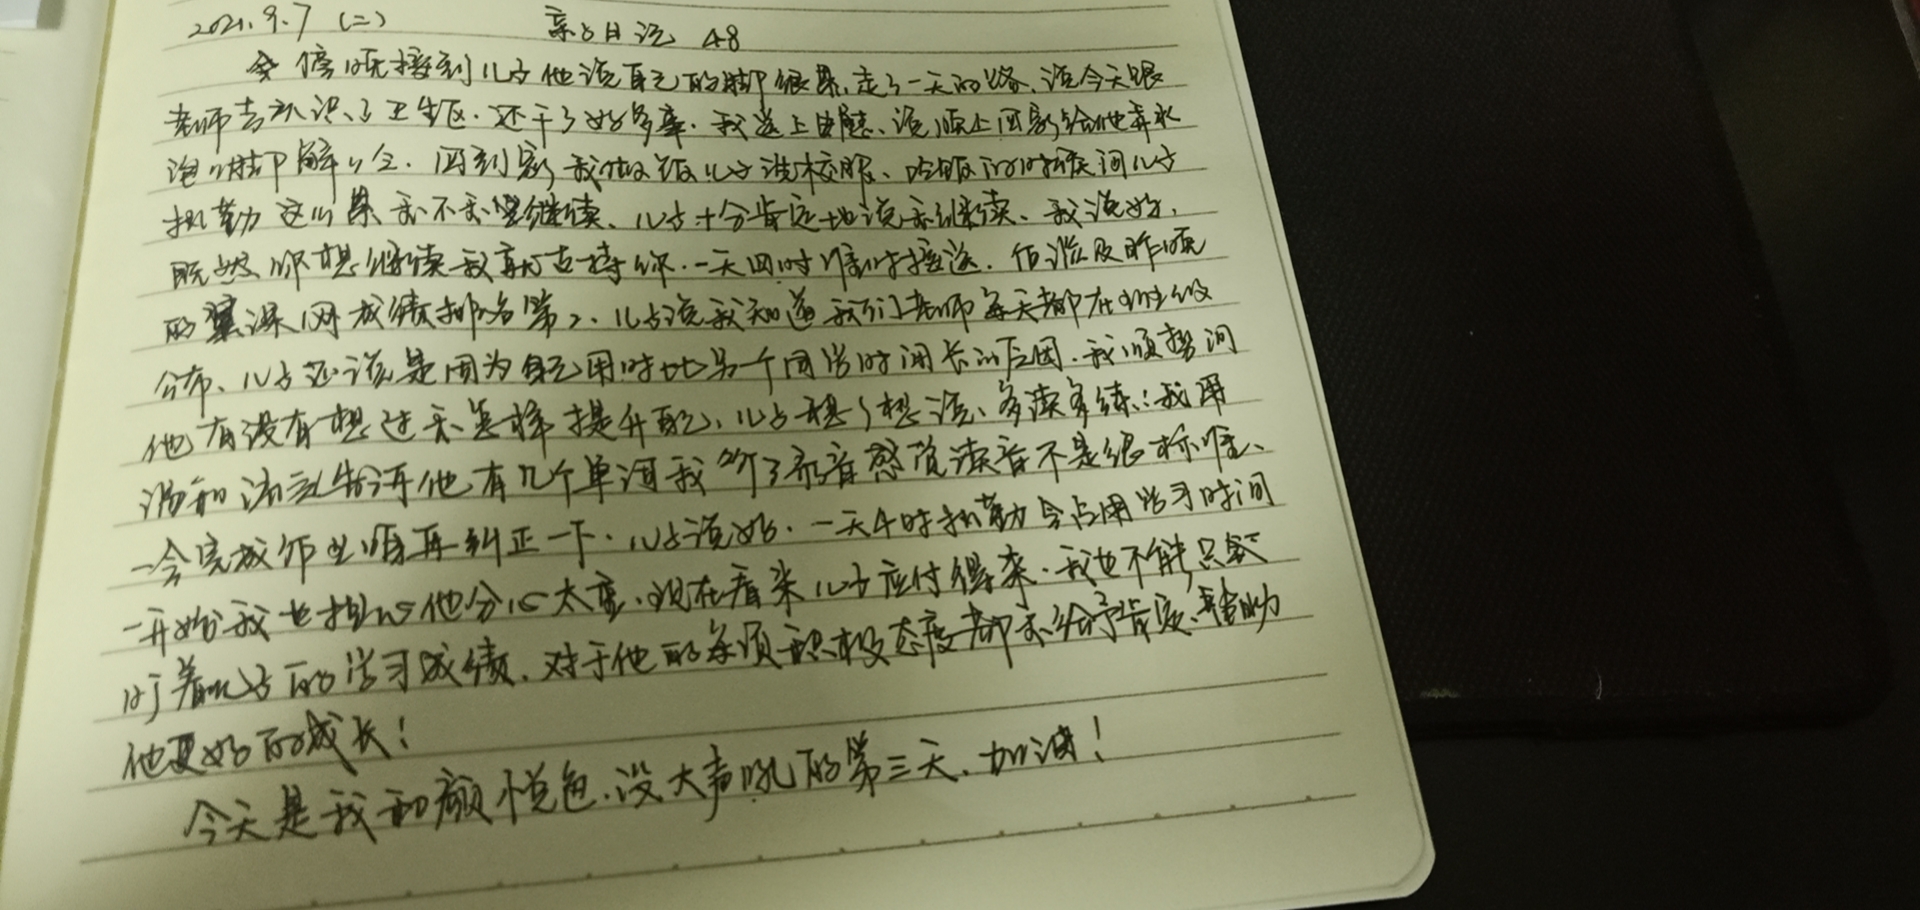 2021.9.7 (二) 亲子日记 48
傍晚接到儿子他说自己的脚很累,走了一天的路,说今天跟
老师去认识了卫生区.还干了好多事.我送上安慰、说晚上回家给他弄水
泡泡脚解解乏.回到家我做饭儿子洗校服、吃饭的时候问儿子
执勤这么累要不要继续、儿子十分肯定地说要继续、我说好,
既然你想继续我就支持你.一天四时准时接送.但谈及昨晚
的翼课网成绩排名第2、儿子说我知道我们老师每天都在班级
公布、儿子还说是因为自己用时比另一个同学时间长的原因.我顺势问
他有没有想过要怎样提升自己、儿子想了想说、多读多练!我用
温和语气告诉他有几个单词我听了录音感觉读音不是很标准、
一会完成作业咱再纠正一下.儿子说好.一天4时执勤会占用学习时间
一开始我也担心他分心太重.现在看来儿子应付得来.我也不能只紧
盯着儿子的学习成绩.对于他的各项积极态度都要给予肯定、帮助
他更好的成长!
今天是我和颜悦色.没大声吼的第三天、加油!